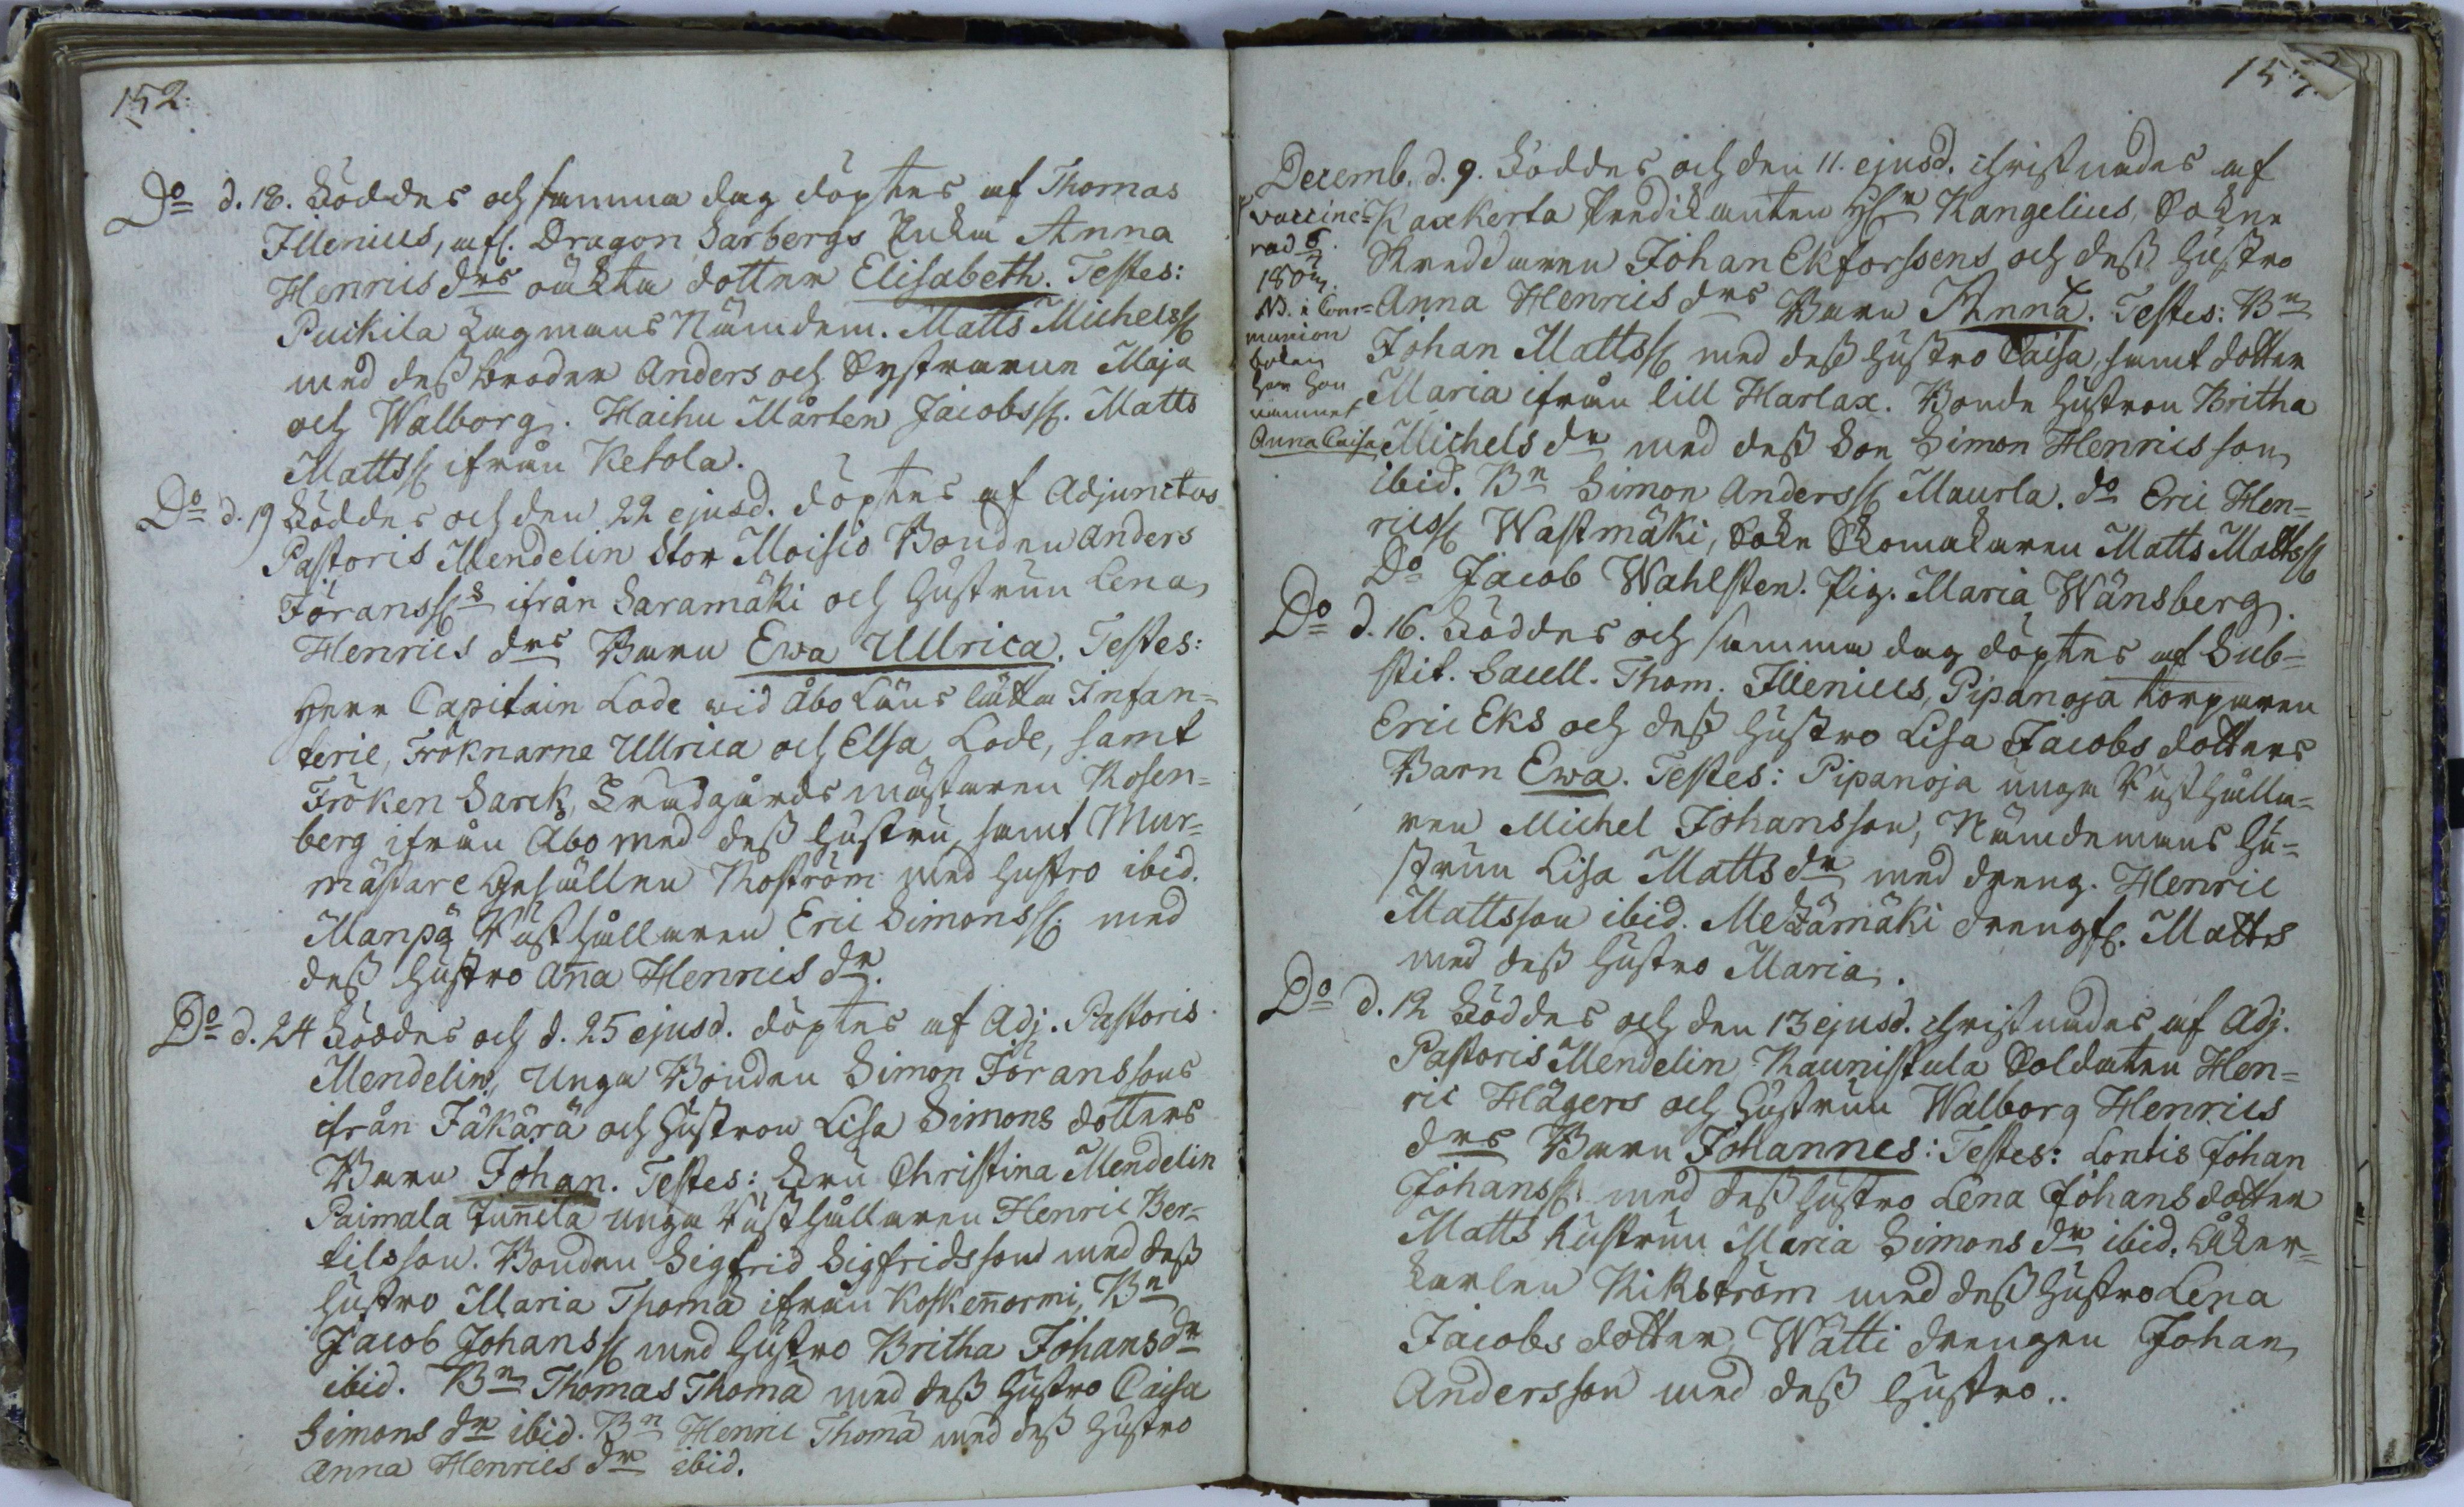 152.
Do d. 18. Föddes och samma dag döptes af Thomas
Illenius, afl. Dragon Sarbergs Enka Anna
Henrics drs oäkta dotter Elisabeth. Testes:
Puckila Lagmans Nämdem. Matts Michelss.
med dess broder Anders och Systrarne Maja
och Walborg. Haihu Mårten Jacobss. Matts
Mattss. ifrån Ketola.
Do d. 19 Föddes och den 22 ejusd. döptes af Adjunctus
Pastoris Mendelin Stor Moisio Bonden Anders
Jöranss.s ifrån Saramäki och Hustrun Lena
Henrics drs Barn Ewa Ullrica. Testes:
Herr Capitain Lode wid Åbo Läns lätta Infan=
terie, Fröknarne Ullrica och Elsa Lode, samt
Fröken Sarck, Trädgårds mästaren Rosen=
berg ifrån Åbo med dess Hustru, samt Mur=
mästare Gesällen Roström med Hustro ibid.
Manpä Rusthållaren Eric Simonss. med
dess Hustro Anna Henrics dr.
Do d. 24 Föddes och d. 25 ejusd. döptes af Adj. Pastoris
Mendelin, Unga Bonden Simon Jöranssons
ifrån Jäkärä och Hustron Lisa Simons dotters
Barn Johan. Testes: Fru Christina Mendelin
Paimala Junnila unga Rusthållaren Henric Ber=
tilsson. Bonden Sigfrid Sigfridsson med dess
Hustro Maria Thomä ifrån Koskennormi, Bn
Jacob Johanss. med Hustro Britha Johans dr
ibid. Bn Thomas Thomä med dess Hustro Caisa
Simons dr ibid. Bn Henric Thomä med dess Hustro
Anna Henrics dr ibid.
Decemb. d. 9. Föddes och den 11. ejusd. christnades af
Kaxkerta Predikanten Hr Kangelius, Sokne
Skreddaren Johan Ekforssens och dess Hustro
Anna Henrics drs Barn Anna. Testes: Bn
Johan Mattss. med dess Hustro Caisa, samt dotter
Maria ifrån lill Harlax. Bonde Hustron Britha
Michels dr med dess Son Simon Henricsson
ibid. Bn Simon Anderss. Maurla. do Eric Hen=
ricss. Wastmäki, Sokn Skomakaren Matts Mattss.
Do Jacob Wahlsten. Pig. Maria Wänsberg.
vaccine=
rad
180
NB. i Com=
munion
boken
har hon
namnet
Anna Caisa
Do d. 16. Föddes och samma dag döptes af Sub=
stit. Sacell. Thom. Illenius, Pipanoja Torparen
Eric Eks och dess Hustro Lisa Jacobs dotters
Barn Ewa. Testes: Pipanoja unga Rusthålla=
ren Michel Johansson, Nämdemans Hu=
strun Lisa Matts dr med dreng. Henric
Mattsson ibid. Metzämäki drengs. Matts
med dess Hustro Maria.
Do d. 12 Föddes och den 13 ejusd. christnades af Adj.
Pastoris Mendelin Raunistula Soldaten Hen=
ric Hägers och Hustrun Walborg Henrics
drs Barn Johannes: Testes: Lontis Johan
Johanss. med dess Hustro Lena Johans dotter
Matts Hustrun Maria Simons dr ibid. Åker=
karlen Kikström med dess Hustro Lena
Jacobs dotter, Wätti drengen Johan
Andersson med dess Hustro..